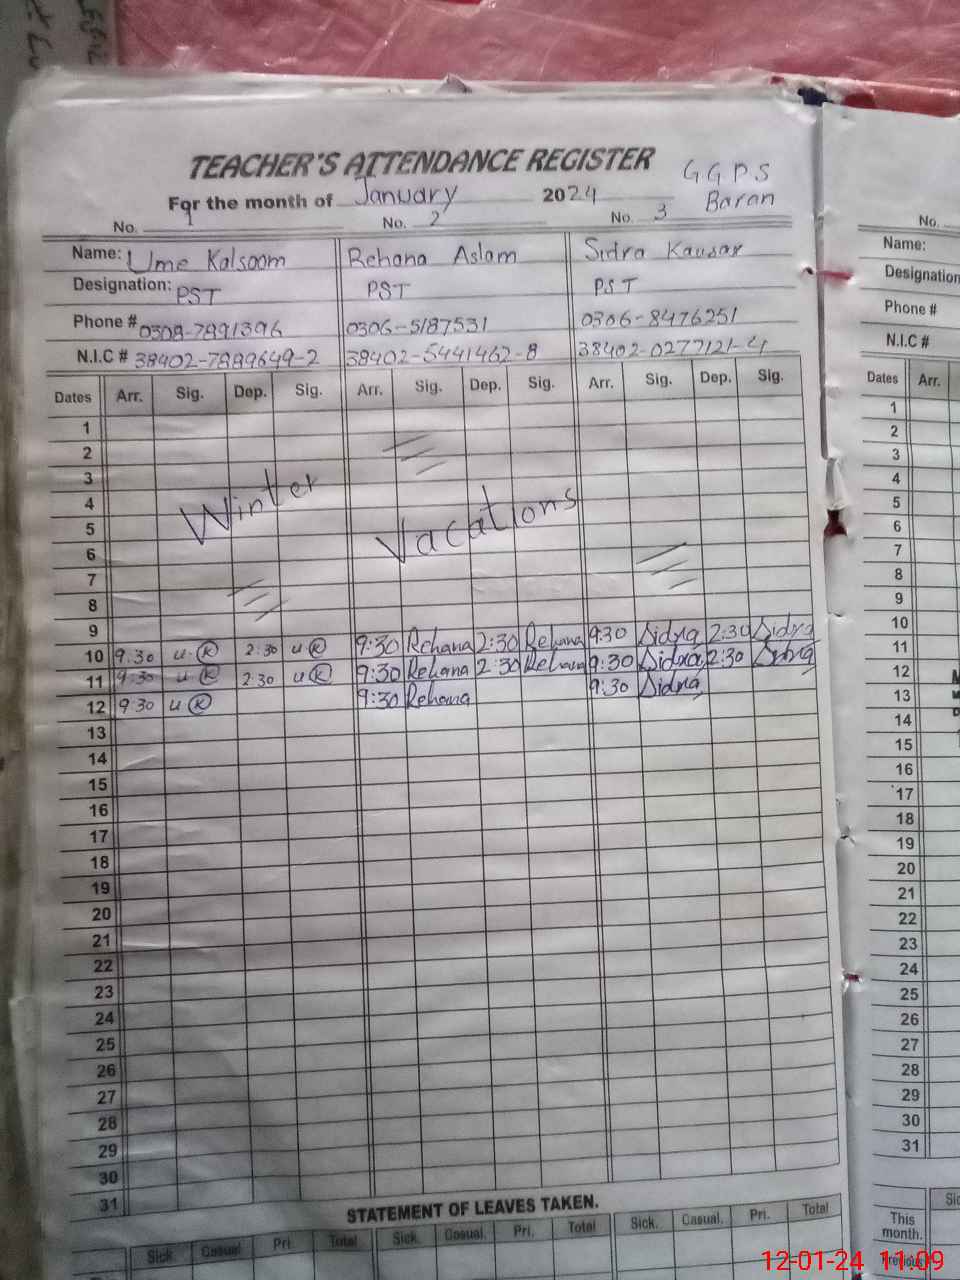 TEACHER'S ATTENDANCE REGISTER
G G P S
For the month of January 2024
Baran
No. 1 No. 2 No. 3
Name: Ume Kalsoom Rehana Aslam Sidra Kausar
Designation: PST PST PST
Phone # 0308-7891396 0306-5187531 0306-8476251
N.I.C # 38402-7889649-2 38402-5441462-8 38402-0277121-4
Dates Arr. Sig. Dep. Sig. Arr. Sig. Dep. Sig. Arr. Sig. Dep. Sig.
1
2
3
4
5
6
7
8
Winter Vacations
9
10 9.30 u R 2:30 u R 9:30 Rehana 2:30 Rehana 9:30 Sidra 2:30 Sidra
11 9:30 u R 2:30 u R 9:30 Rehana 2:30 Rehana 9:30 Sidra 2:30 Sidra
12 9:30 u R 9:30 Rehana 9:30 Sidra
13
14
15
16
17
18
19
20
21
22
23
24
25
26
27
28
29
30
31
STATEMENT OF LEAVES TAKEN.
Sick. Casual. Pri. Total Sick. Casual. Pri. Total Sick. Casual. Pri. Total
No.
Name:
Designation
Phone #
N.I.C #
Dates Arr.
1
2
3
4
5
6
7
8
9
10
11
12
13
14
15
16
17
18
19
20
21
22
23
24
25
26
27
28
29
30
31
This
month.
Previous
12-01-24 11:09